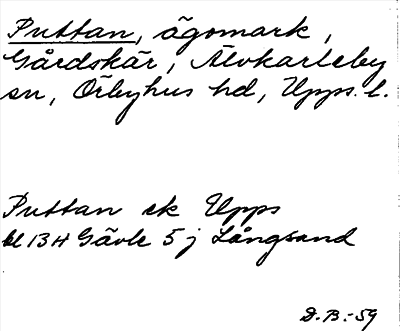 Puttan, ägomark,
Gårdskär, Älvkarleby
sn, Örbyhus hd, Upps. l.
Puttan ek Upps
bl 13H Gävle 5 j Långsand
D.B.-59